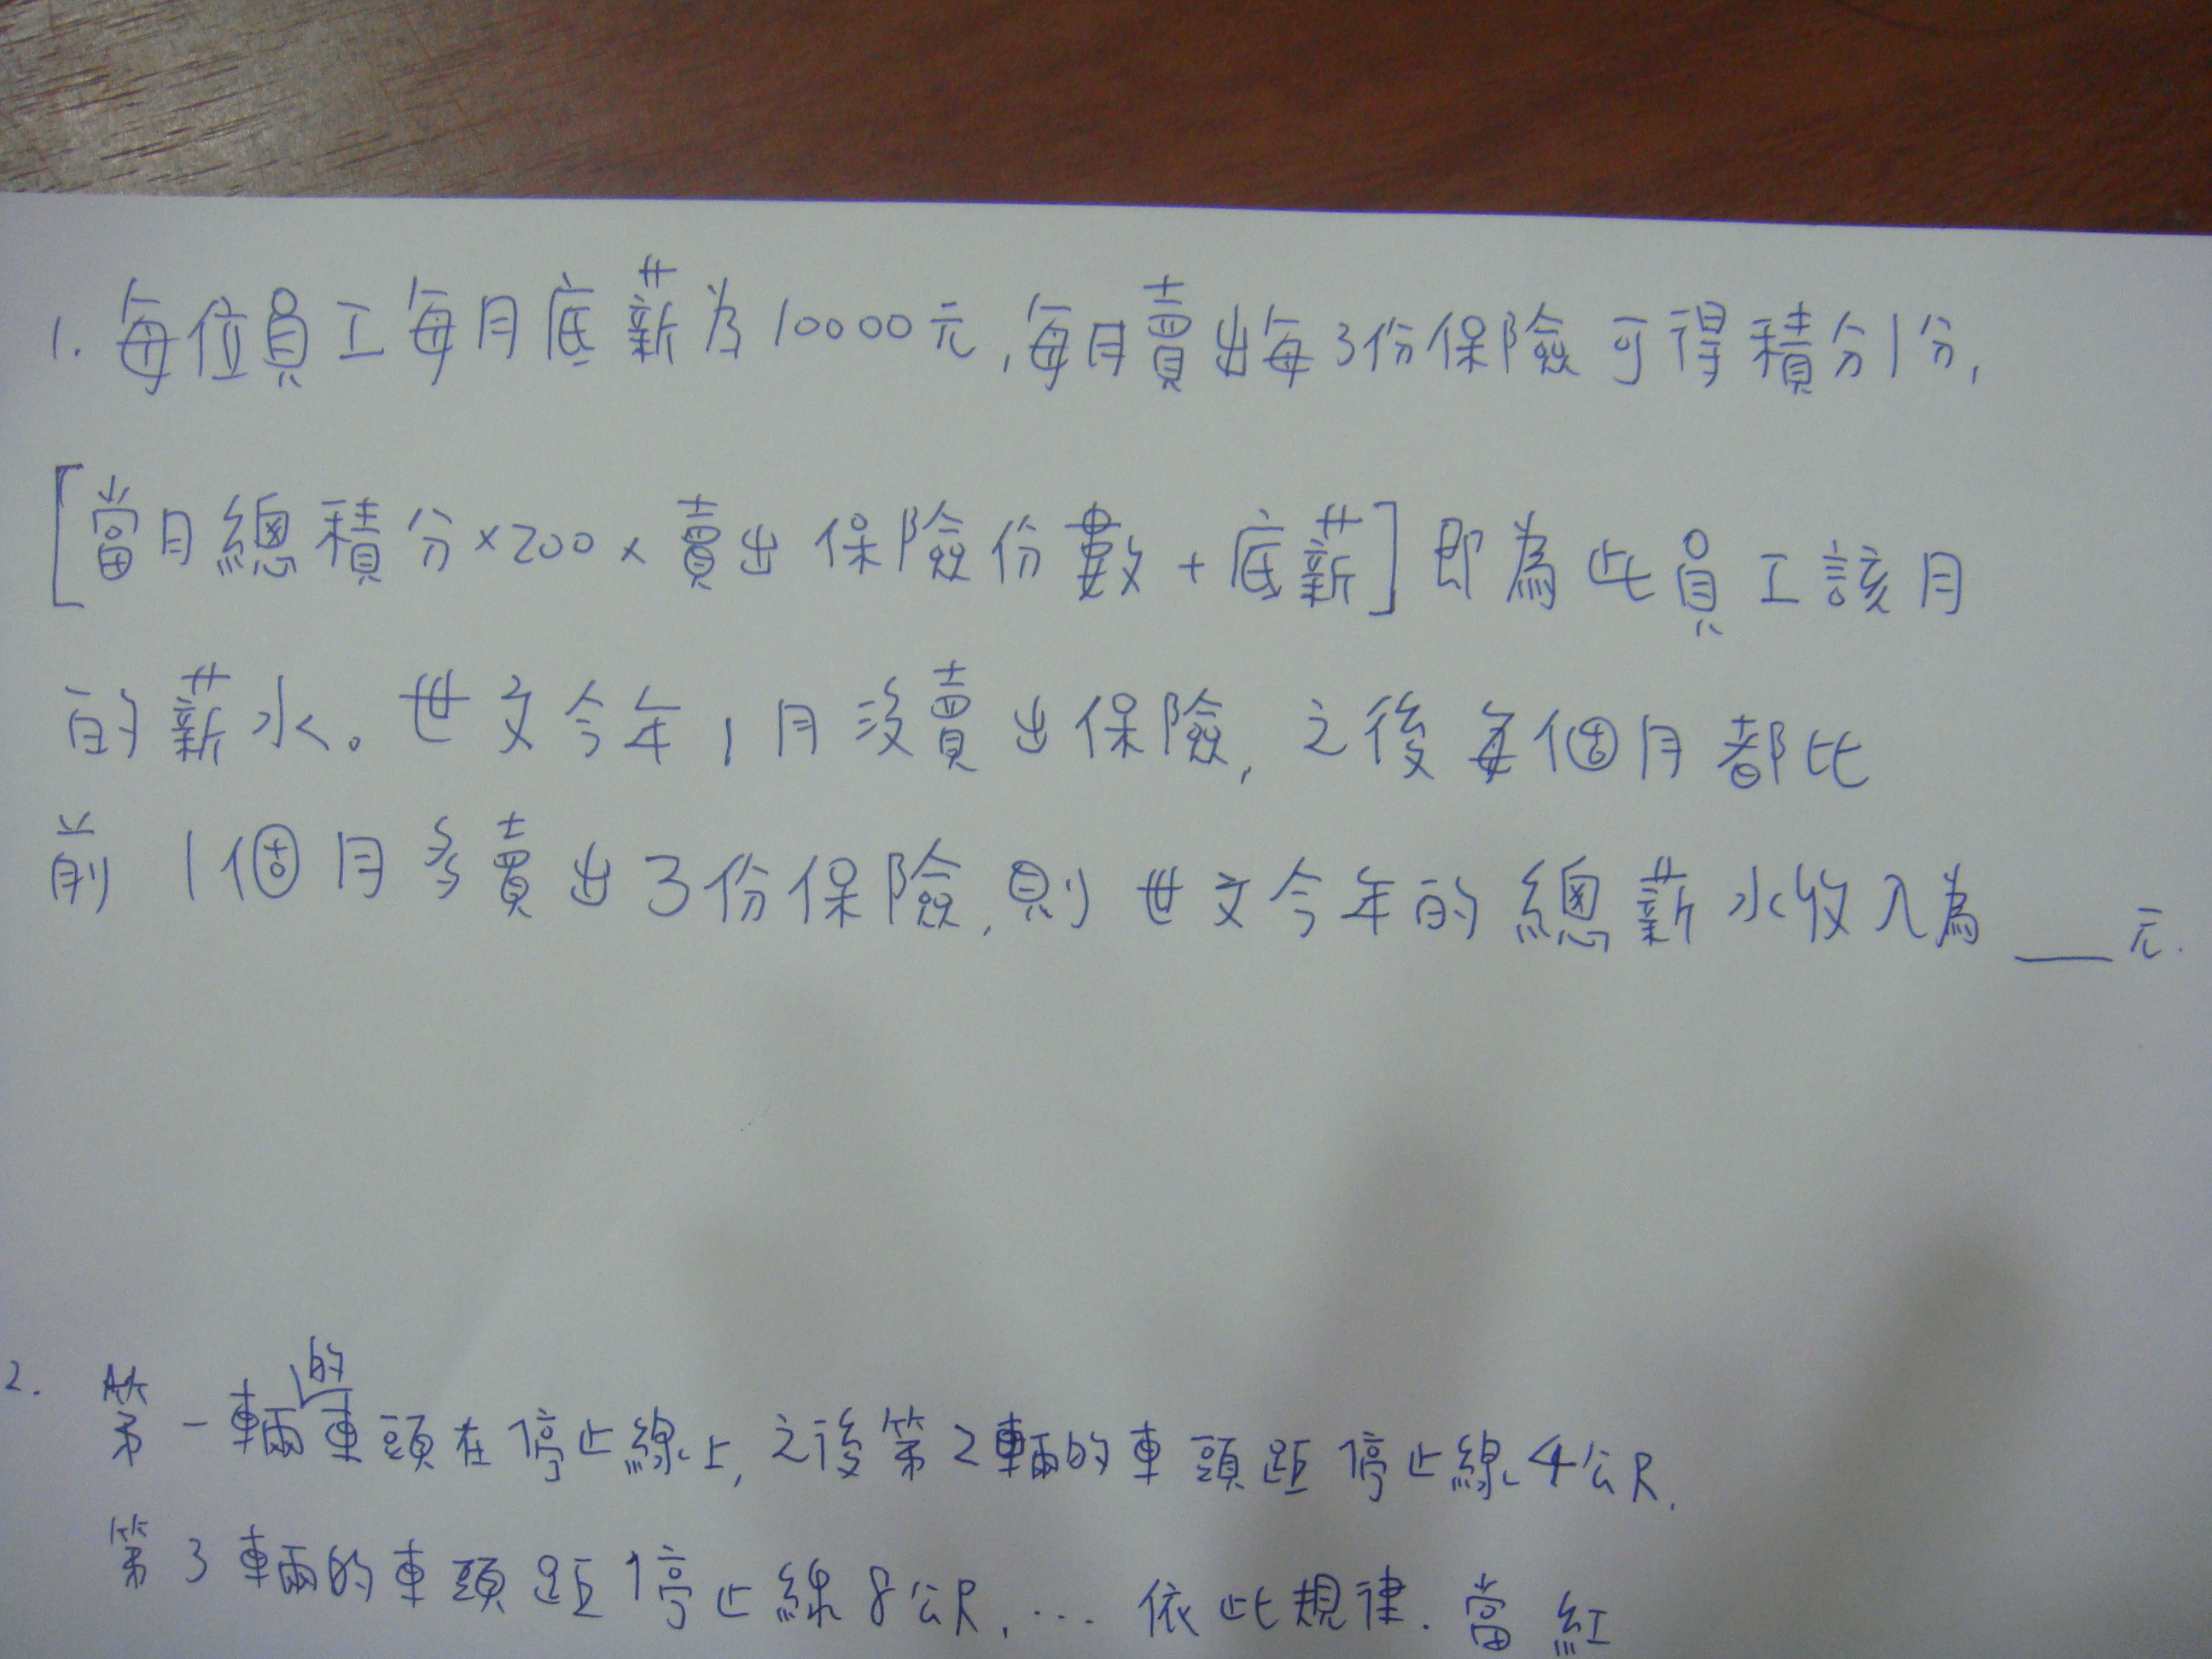 1. 每位員工每月底薪为10000元,每月賣出每3份保險可得積分1分,
[當月總積分×200×賣出保險份數+底薪]即為此員工該月
的薪水。世文今年1月沒賣出保險,之後每個月都比
前1個月多賣出3份保險,則世文今年的總薪水收入為__元.
2. 第一輛的車頭在停止線上,之後第2輛的車頭距停止線4公尺,
第3輛的車頭距停止線8公尺,…依此規律.當紅